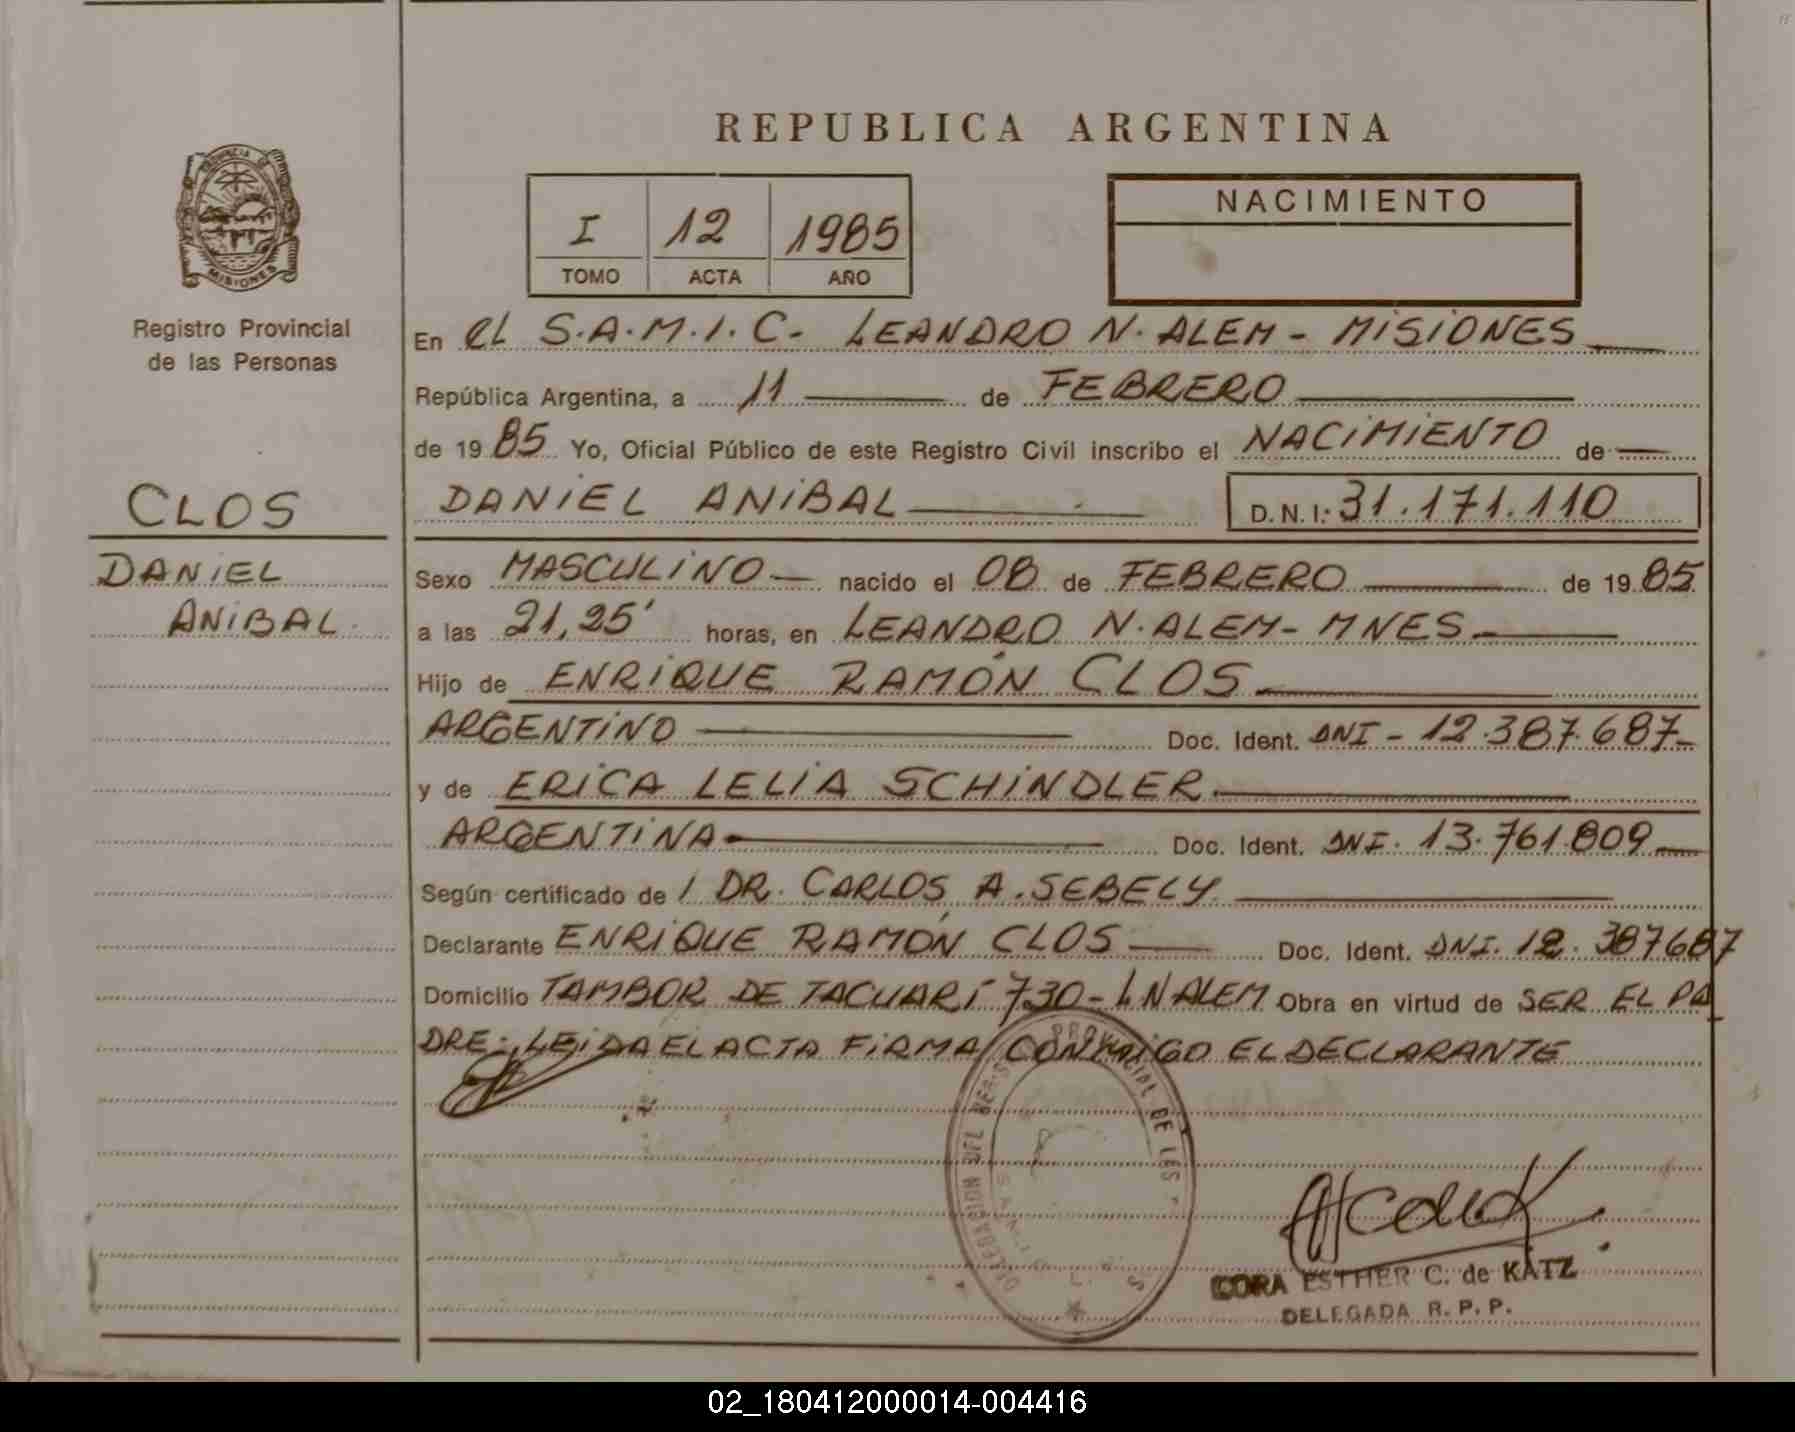 REPUBLICA ARGENTINA
PROVINCIA DE
MISIONES
Registro Provincial
de las Personas
I 12 1985
TOMO ACTA AÑO
NACIMIENTO
En el S.A.M.I.C. LEANDRO N. ALEM - MISIONES
República Argentina, a 11 de FEBRERO
de 1985 Yo, Oficial Público de este Registro Civil inscribo el NACIMIENTO de
CLOS
DANIEL ANIBAL D.N.I: 31.171.110
DANIEL
ANIBAL
Sexo MASCULINO nacido el 08 de FEBRERO de 1985
a las 21,25' horas, en LEANDRO N. ALEM - MNES
Hijo de ENRIQUE RAMÓN CLOS
ARGENTINO Doc. Ident. DNI - 12.387.687
y de ERICA LELIA SCHINDLER
ARGENTINA Doc. Ident. DNI. 13.761.809
Según certificado de / DR. CARLOS A. SEBELY
Declarante ENRIQUE RAMÓN CLOS Doc. Ident. DNI. 12.387687
Domicilio TAMBOR DE TACUARÍ 730 - L N ALEM Obra en virtud de SER EL PA
DRE: LEIDA EL ACTA FIRMA CONMIGO EL DECLARANTE
DELEGACION DEL PROVINCIAL DE LES
CORA ESTHER C. de KATZ
DELEGADA R. P. P.
02_180412000014-004416